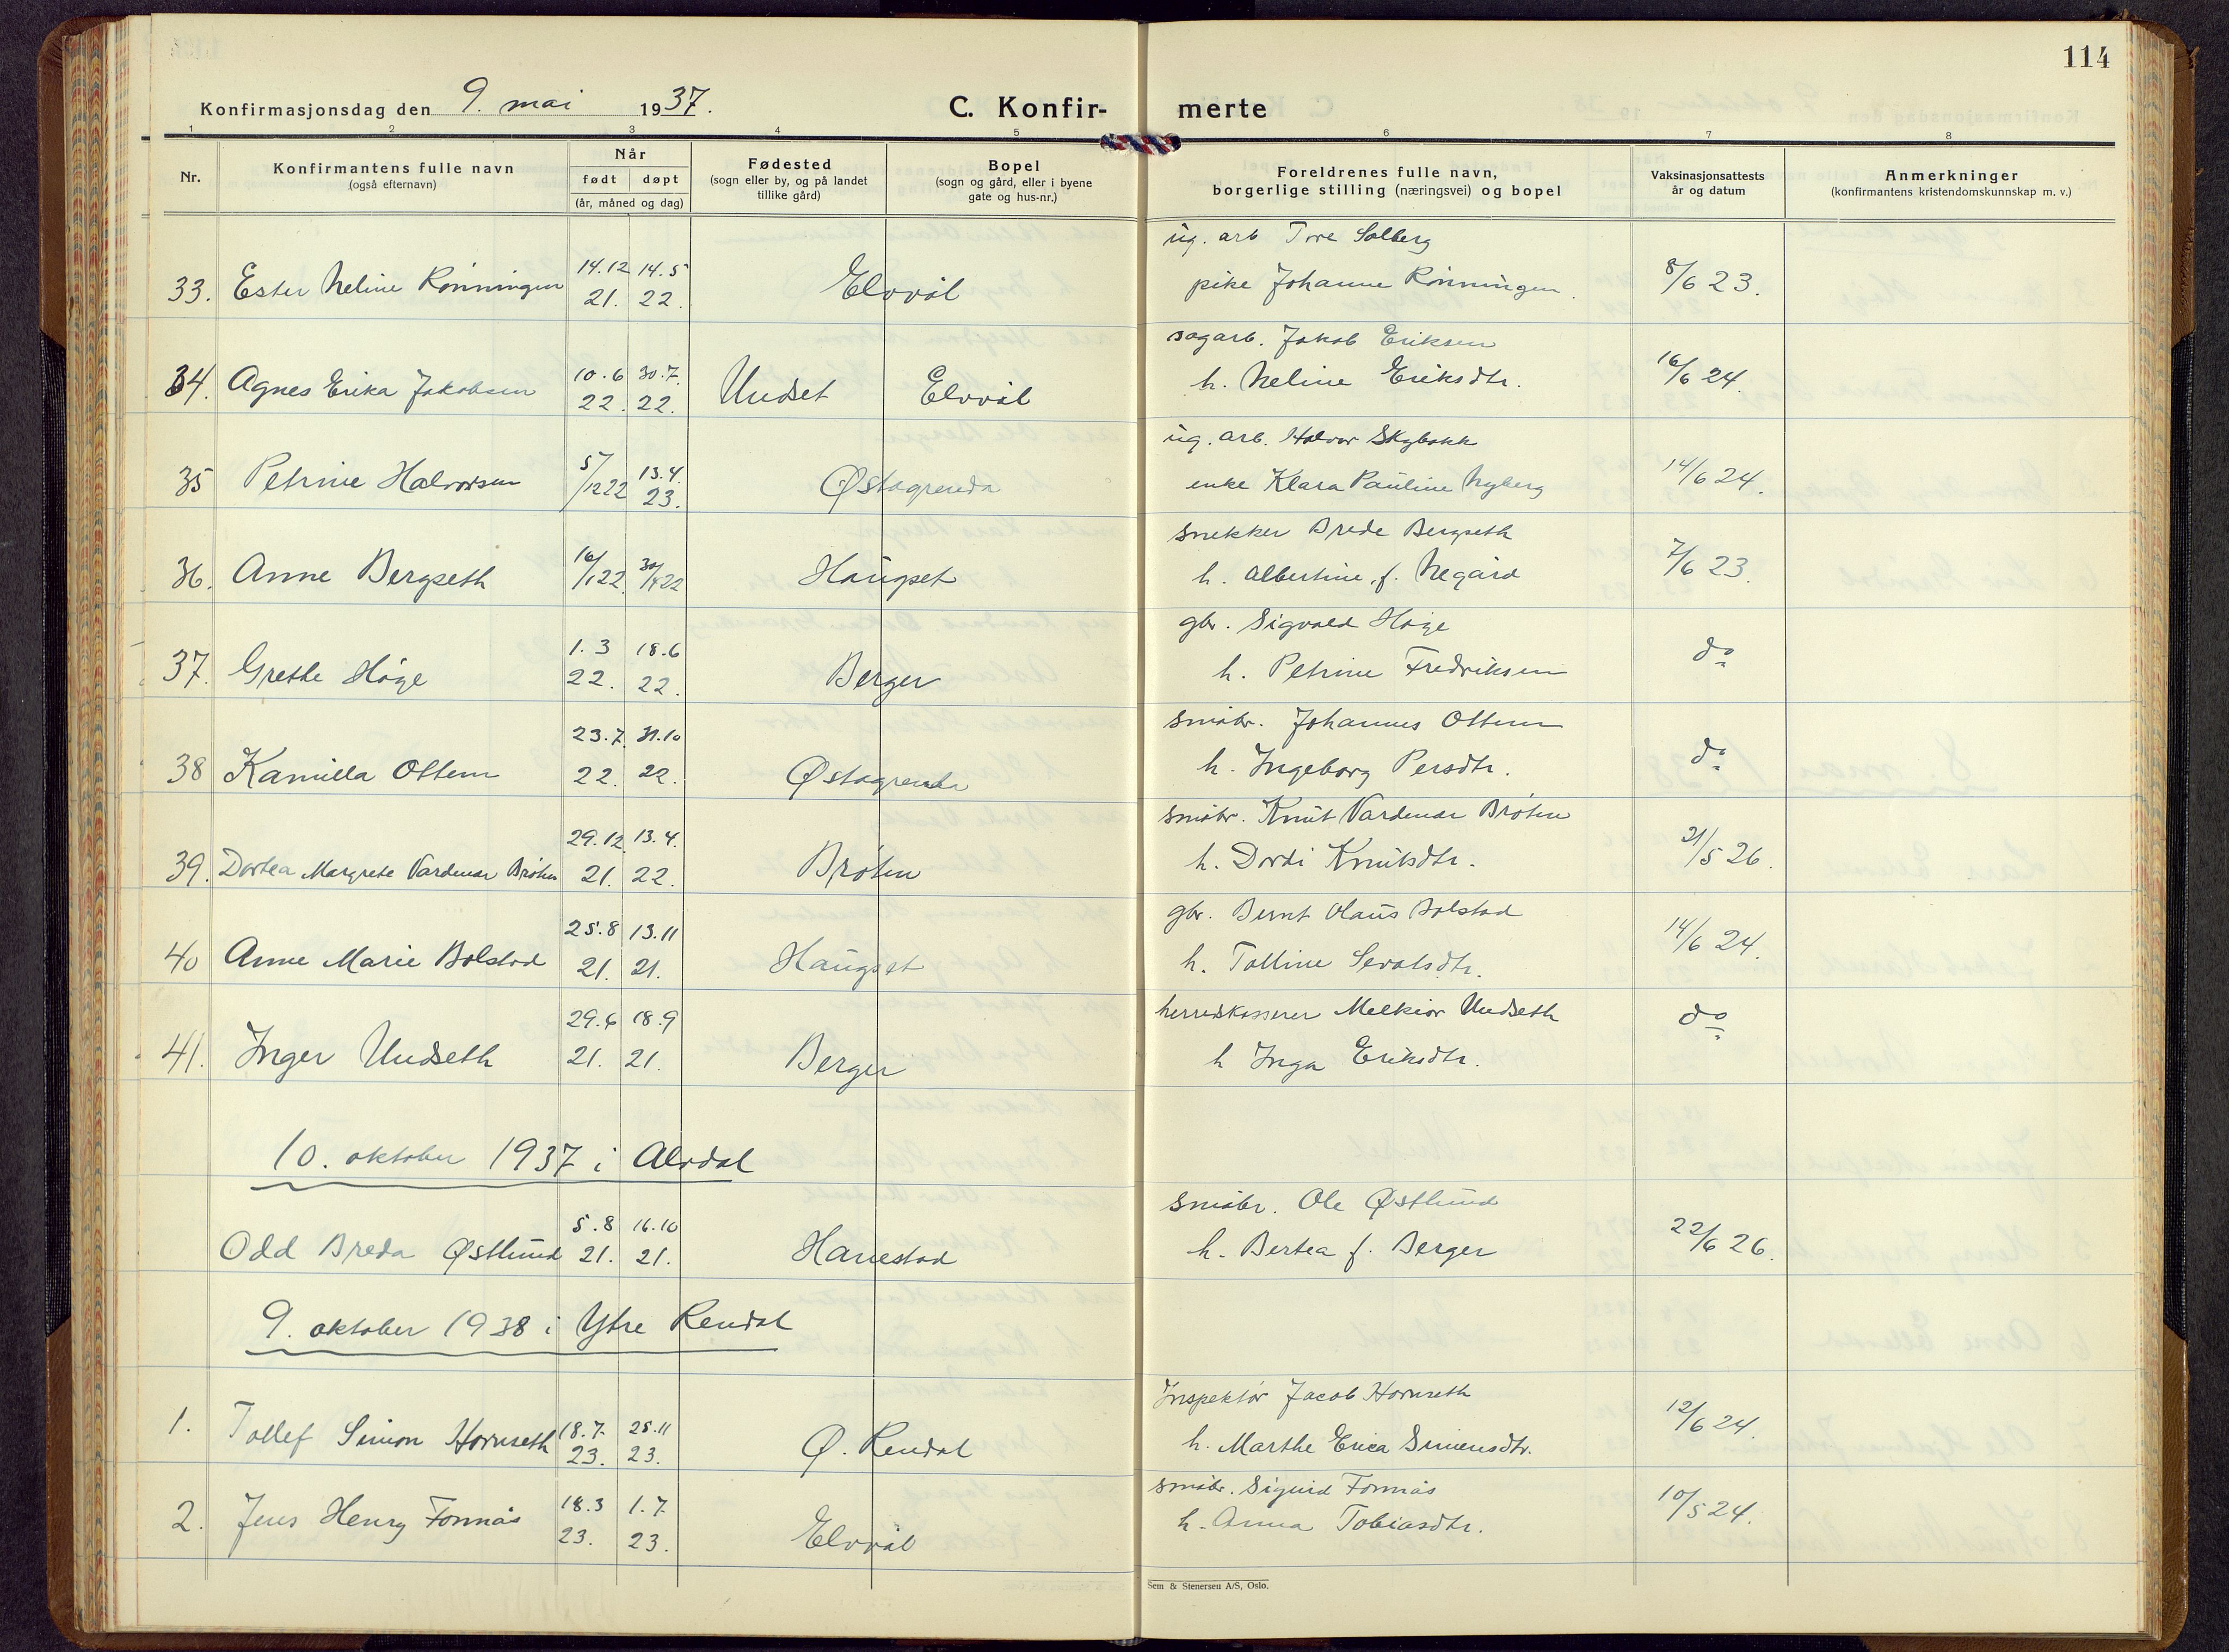 114
Konfirmasjonsdag den 9. mai 1937.
C. Konfir-merte
1 2 3 4 5 6 7 8
Nr.
Konfirmantens fulle navn
(også efternavn)
Når
født døpt
(år, måned og dag)
Fødested
(sogn eller by, og på landet
tillike gård)
Bopel
(sogn og gård, eller i byene
gate og hus-nr.)
Foreldrenes fulle navn,
borgerlige stilling (næringsvei) og bopel
Vaksinasjonsattests
år og datum
Anmerkninger
(konfirmantens kristendomskunnskap m. v.)
ug. arb Tore Solberg
33. Ester Neline Rønningen 14.12 21. 14.5 22. Elvål pike Johanne Rønningen. 8/6 23.
sagarb. Jakob Eriksen
34. Agnes Erika Jakobsen 10.6 22. 30.7. 22. Undset Elvål h. Neline Eriksdtr. 16/6 24.
ug. arb. Halvor Skybakk
35 Petrine Halvorsen 5/12 22 13.4. 23. Østagrenda enke Klara Pauline Nyberg 14/6 24.
snekker Brede Bergseth
36. Anne Bergseth 16/1 22. 30/4 22 Haugset h. Albertine f. Negård 7/6 23.
gbr. Sigvald Høye
37. Grethe Høye 1.3 22. 18.6 22. Berger h. Petrine Fredriksen do
småbr. Johannes Ottem
38 Kamilla Ottem 23.7. 22. 31.10 22. Østagrenda h. Ingeborg Persdtr. do
småbr. Knut Vardenær Bråten
39. Dortea Margrete Vardenær Bråten 29.12. 21. 13.4. 22. Bråten h. Dordi Knutsdtr. 21/5 26.
gbr. Bernt Olaus Bolstad
40 Anne Marie Bolstad 25.8 21. 13.11 21. Haugset h. Tolline Sevatsdtr. 14/6 24.
herredskasserer Melkior Undseth
41. Inger Undseth 29.6 21. 18.9 21. Berger h Inga Eriksdtr. do
10. oktober 1937 i Alvdal
småbr. Ole Østlund
Odd Breda Østlund 5.8 21. 16.10 21. Hanestad h. Bertea f. Berger 22/6 26.
9. oktober 1938 i Ytre Rendal
Inspektør Jacob Hornseth
1. Tollef Simon Hornseth 18.7. 23. 25.11 23. Ø. Rendal h. Marthe Erica Simensdtr. 12/6 24.
småbr. Sigurd Fonnås
2. Jens Henry Fonnås 18.3 23. 1.7. 23. Elvål h. Anna Tobiasdtr. 10/5 24.
Sem & Stenersen A/S, Oslo.